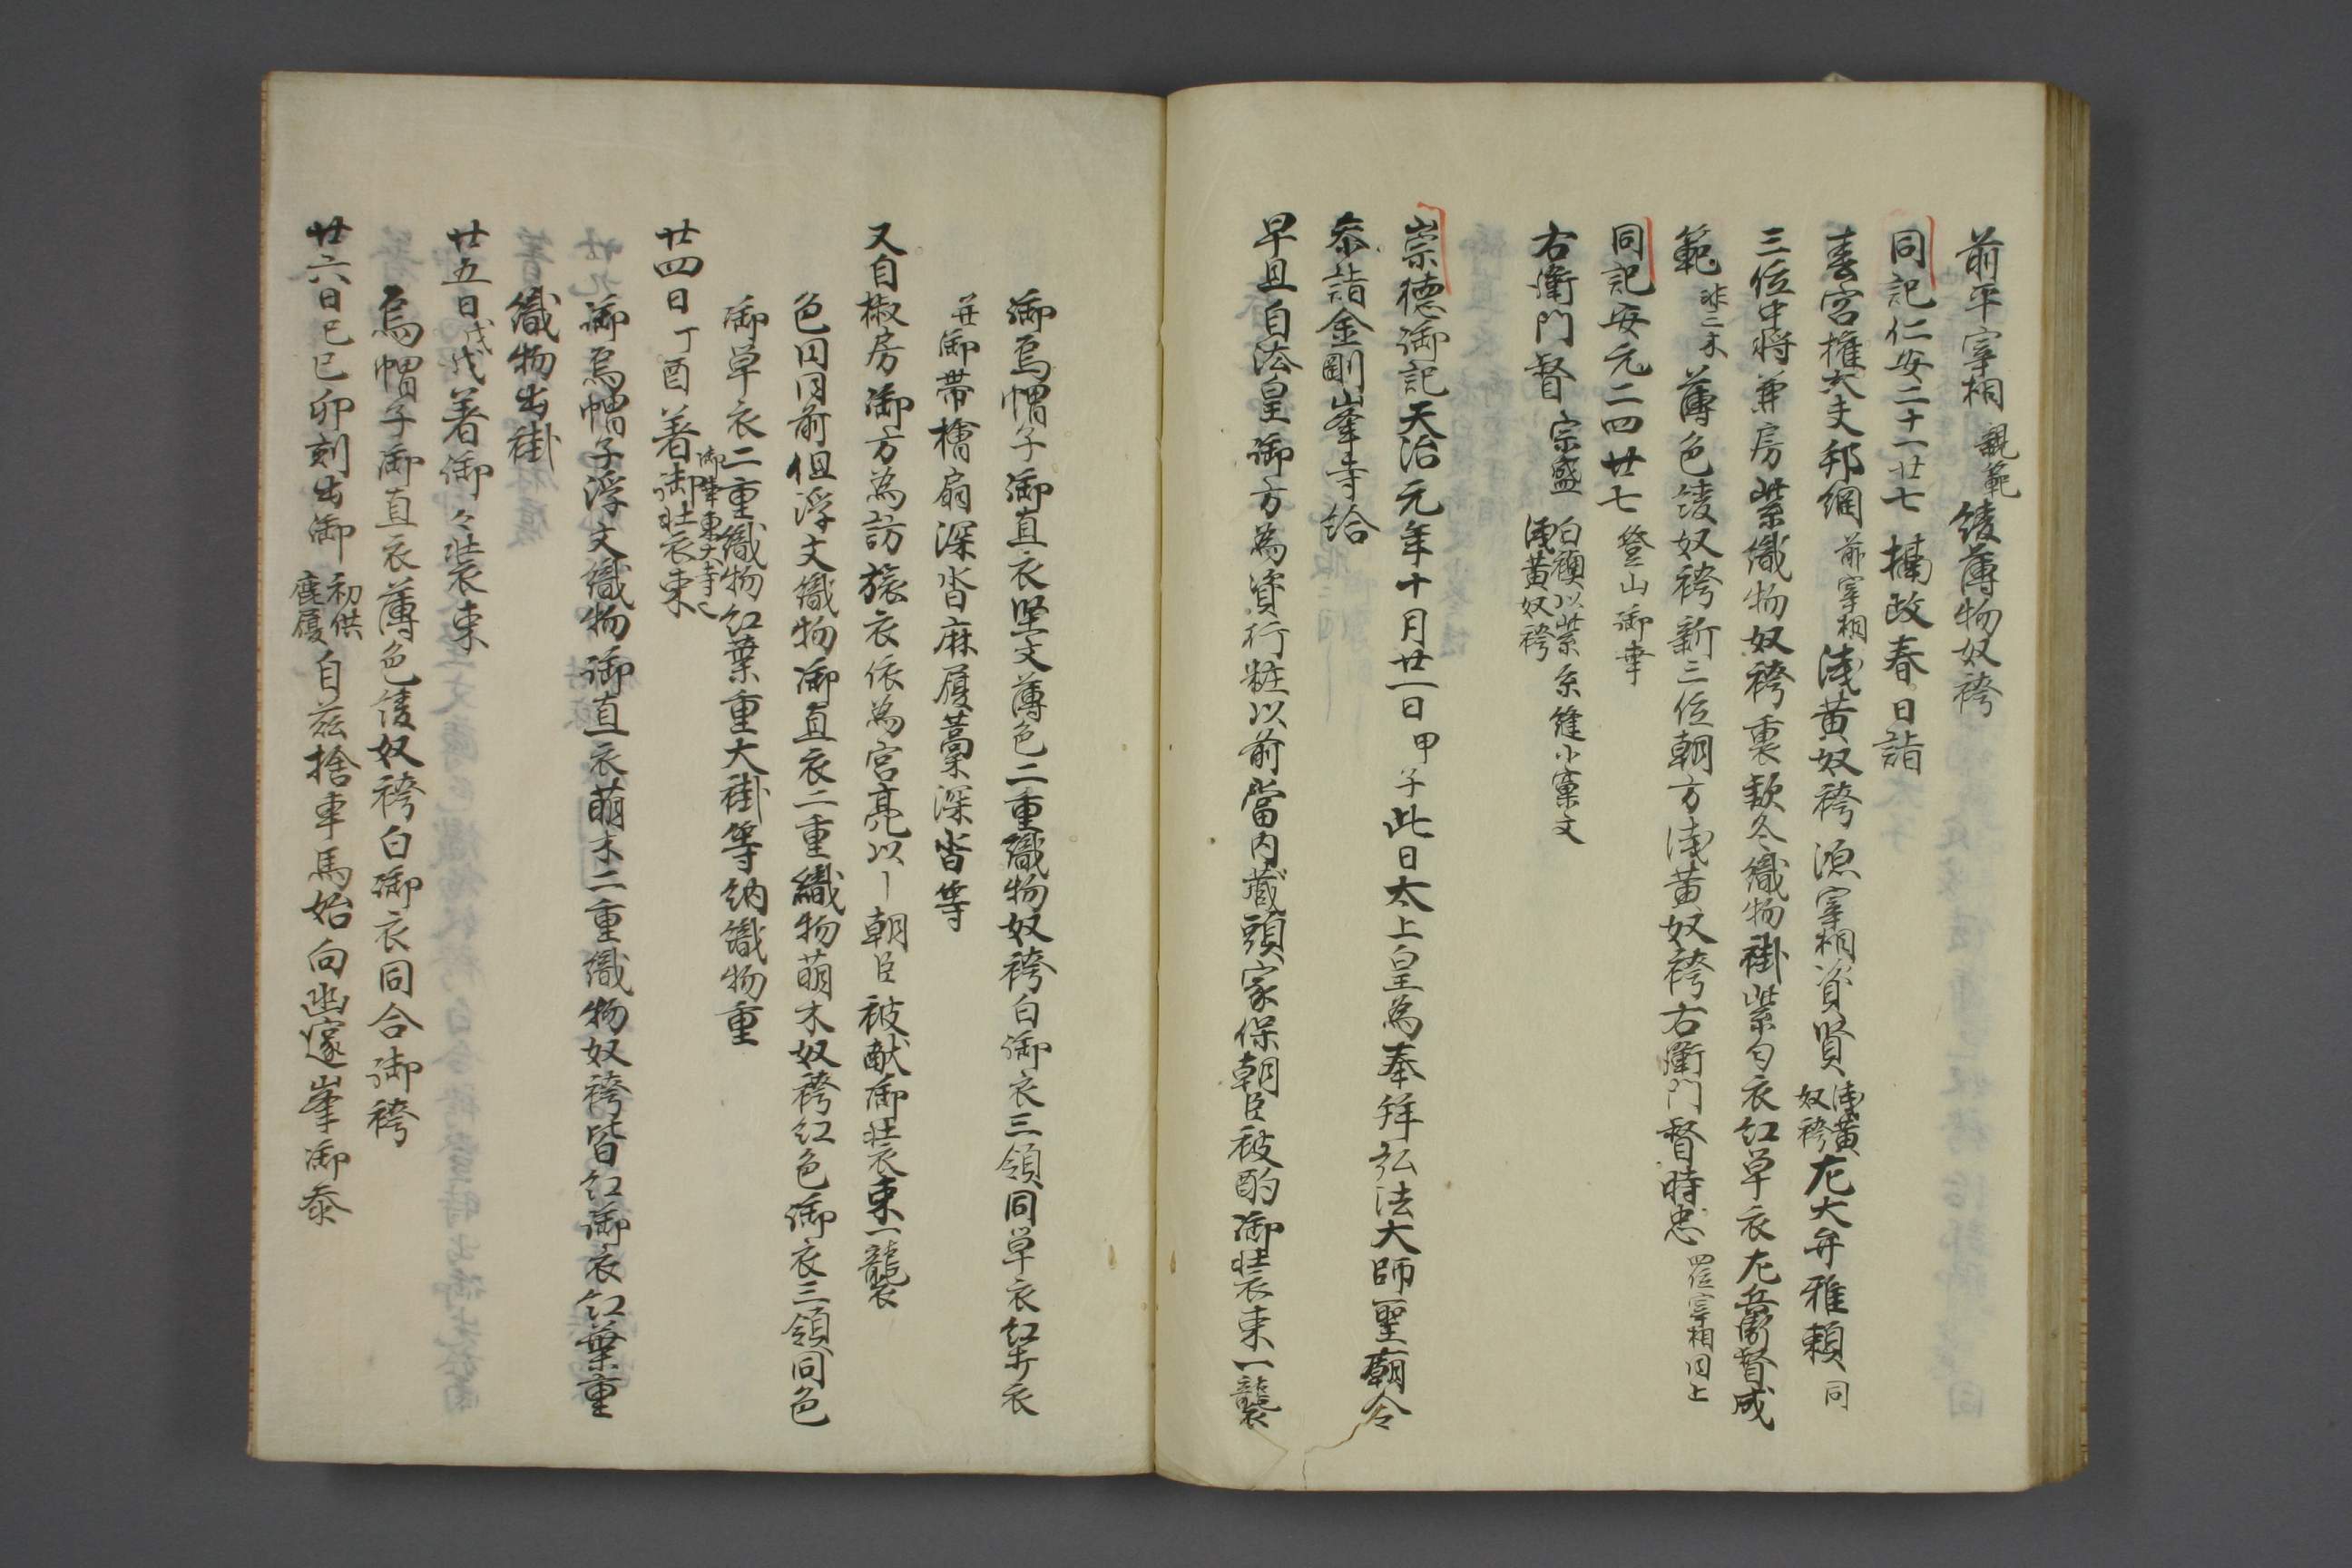 前平宰相親範綾薄物奴袴
同記仁安二十一廿七 摂政春日詣
春宮権大夫邦綱前宰相浅黄奴袴源宰相資賢浅黄奴袴左大弁雅頼同
三位中将兼房紫織物奴袴裏款冬織物褂紫匂衣紅単衣左兵衛督成
範非二木薄色綾奴袴新三位朝方浅黄奴袴右衛門督時忠四位宰相同上
同記安元二四廿七登山御幸
右衛門督宗盛白襖以紫糸縫小窠文浅黄奴袴
崇徳御記天治元年十月廿一日甲子此日太上皇為奉拝弘法大師聖廟令
参詣金剛峯寺給
早旦自法皇御方為資行粧以前當内蔵頭家保朝臣被酌御装束一襲
御烏帽子御直衣堅文薄色二重織物奴袴白御衣三領同単衣紅打衣
并御帯檜扇深沓麻履藁深沓等
又自椒房御方為訪旅衣依為宮亮以ー朝臣被献御装束一襲
色目同前但浮文織物御直衣二重織物萌木奴袴紅色御衣三領同色
御単衣二重織物紅葉重大褂等納織物重
廿四日丁酉著御装束御幸東大寺云々
御烏帽子浮文織物御直衣萌木二重織物奴袴皆紅御衣紅葉重
織物出褂
廿五日戊戌著御々装束
烏帽子御直衣薄色綾奴袴白御衣同合御袴
廿六日己巳卯刻出御初供鹿履自茲捨車馬始向幽邃峯御参